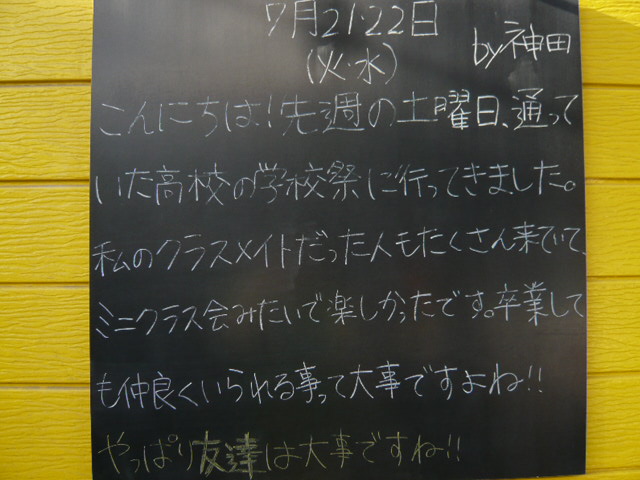 7月21・22日
(火・水)
by神田
こんにちは!先週の土曜日、通って
いた高校の学校祭に行ってきました。
私のクラスメイトだった人もたくさん来ていて、
ミニクラス会みたいで楽しかったです。卒業して
も仲良くいられる事って大事ですよね!!
やっぱり友達は大事ですね!!